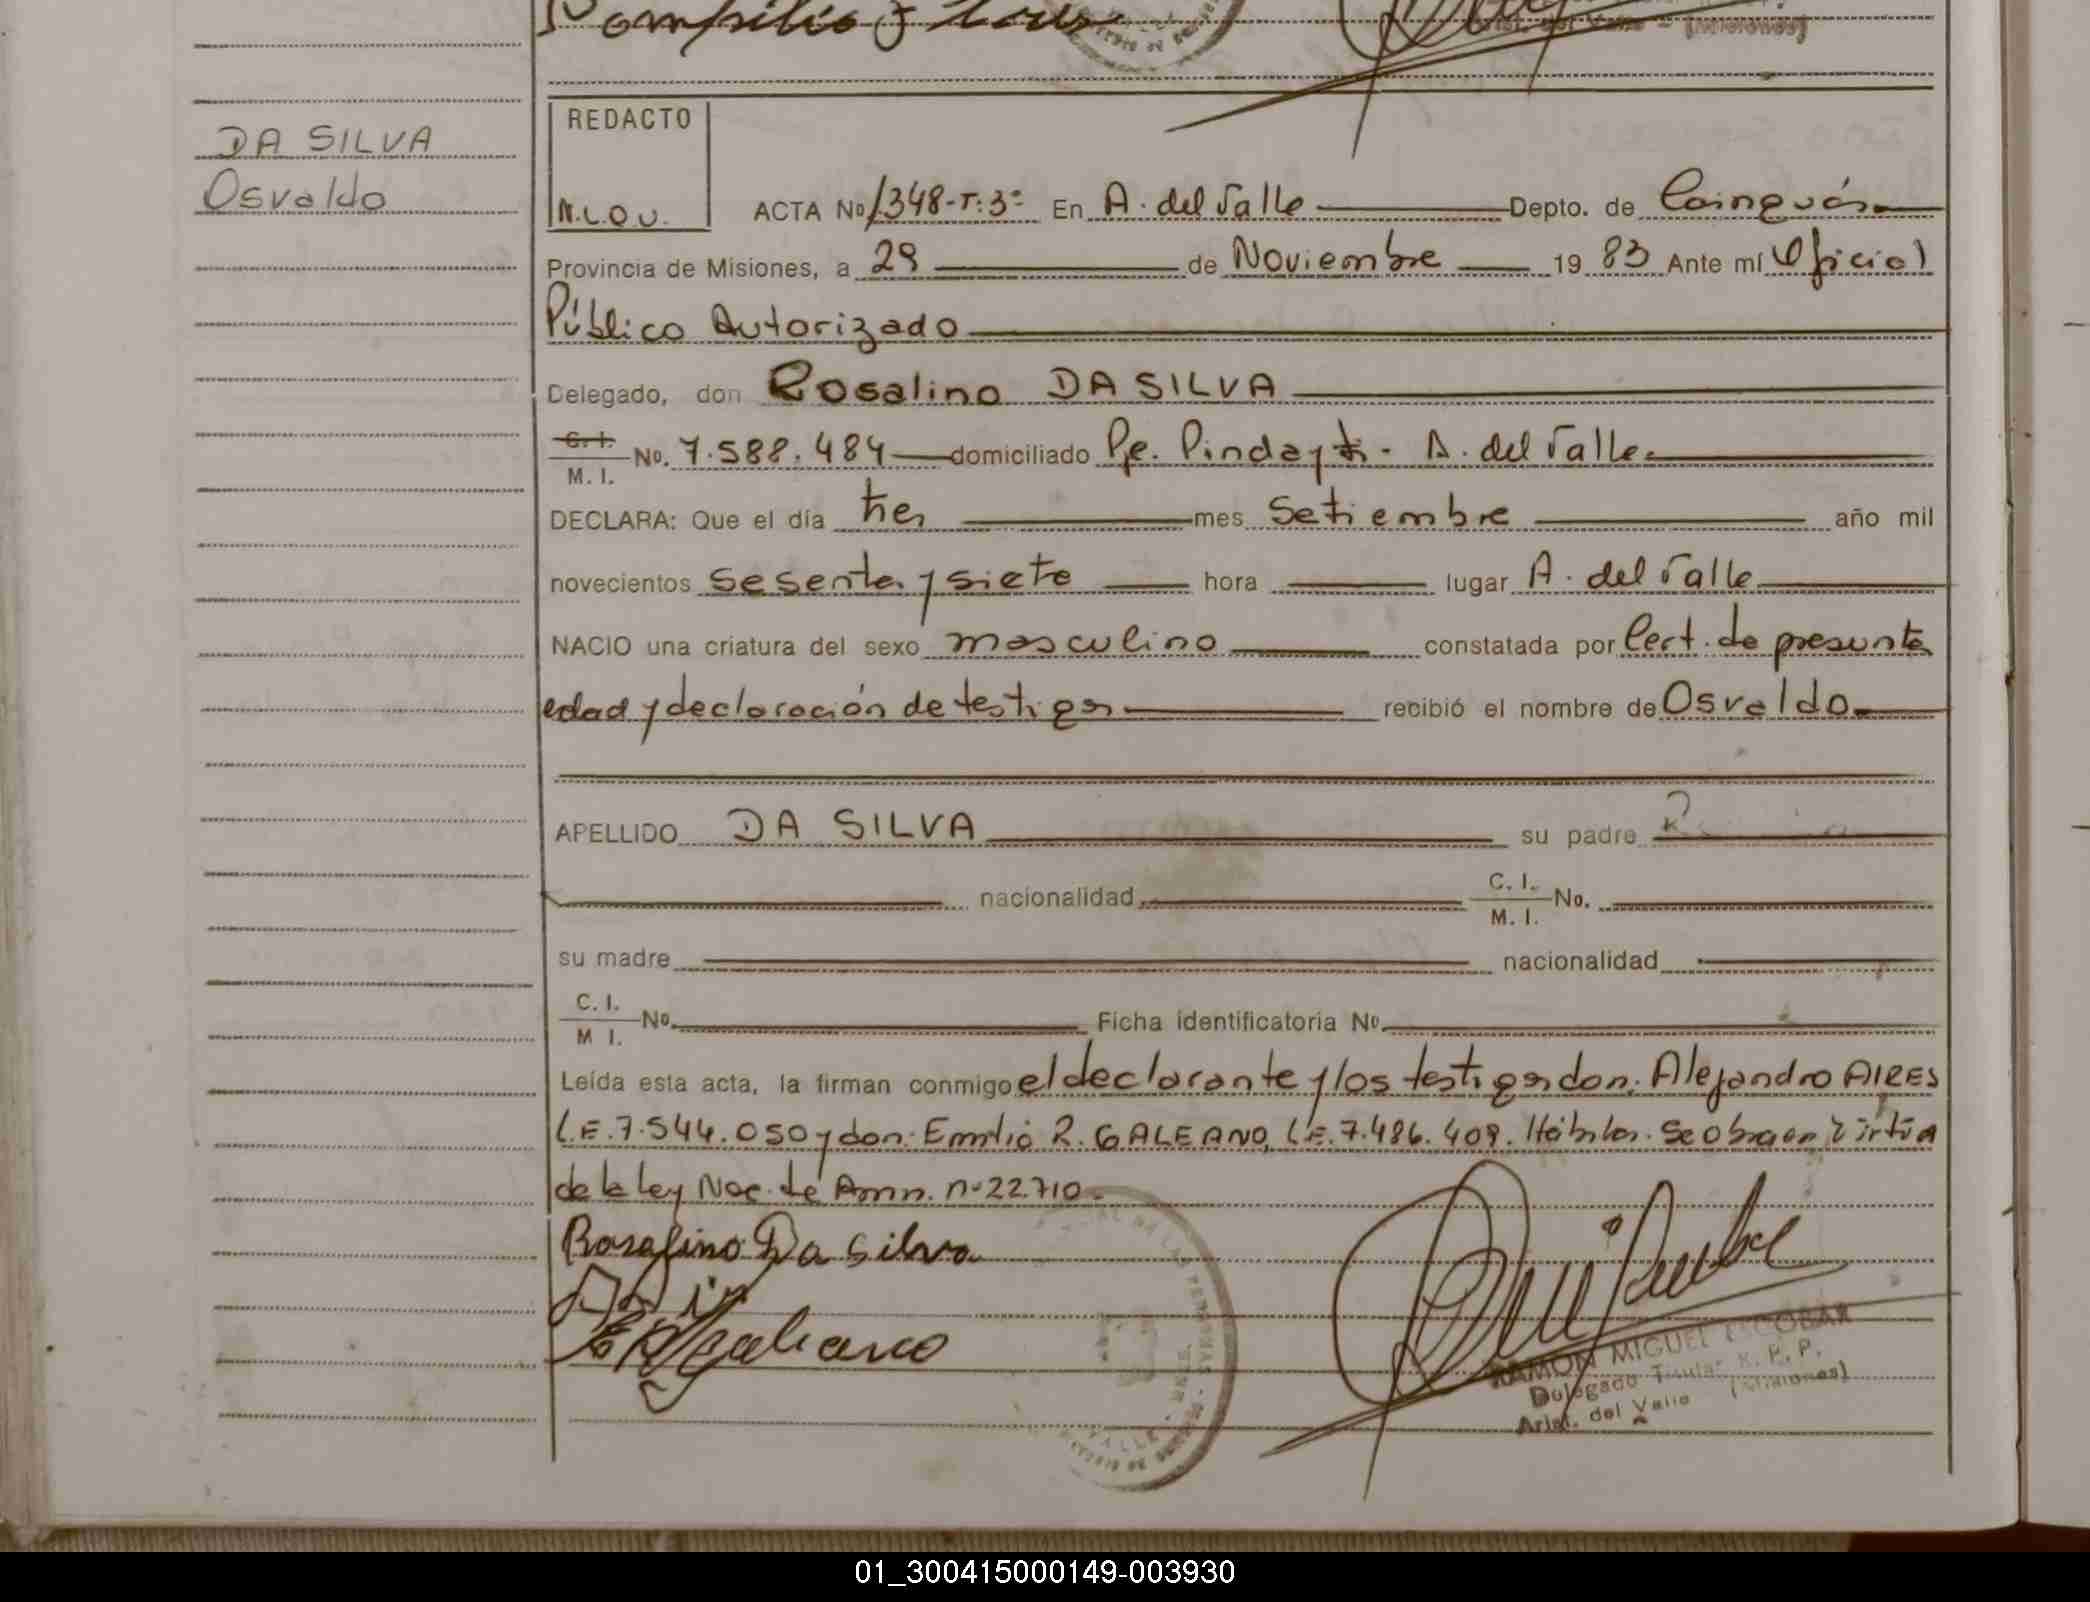 DA SILVA
Osvaldo
REDACTO
N.L.O.U.
ACTA No 1348-T:3º En A. del Valle Depto. de Cainguás
Provincia de Misiones, a 29 de Noviembre 19 83 Ante mí Oficial
Público Autorizado
Delegado, don Rosalino DA SILVA
C. I.
M. I. No. 7.588.484 domiciliado Pje. Pindayti - A. del Valle
DECLARA: Que el día tres mes Setiembre año mil
novecientos sesenta y siete hora lugar A. del Valle
NACIO una criatura del sexo masculino constatada por Cert. de presunta
edad y declaración de testigos recibió el nombre de Osvaldo
APELLIDO DA SILVA su padre
nacionalidad C. I.
M. I. No.
su madre nacionalidad
C. I.
M I. No. Ficha identificatoria No.
Leída esta acta, la firman conmigo el declarante y los testigos don: Alejandro AIRES
L.E. 7.544.050 y don: Emilio R. GALEANO, L.E. 7.486.409. Hábiles. Se obra en virtud
de la ley Nac. de Amn. nº 22.710.
Rosalino Da Silva
RAMON MIGUEL ESCOBAR
Delegado Titular R. P. P.
Arist. del Valle (Misiones)
01_300415000149-003930